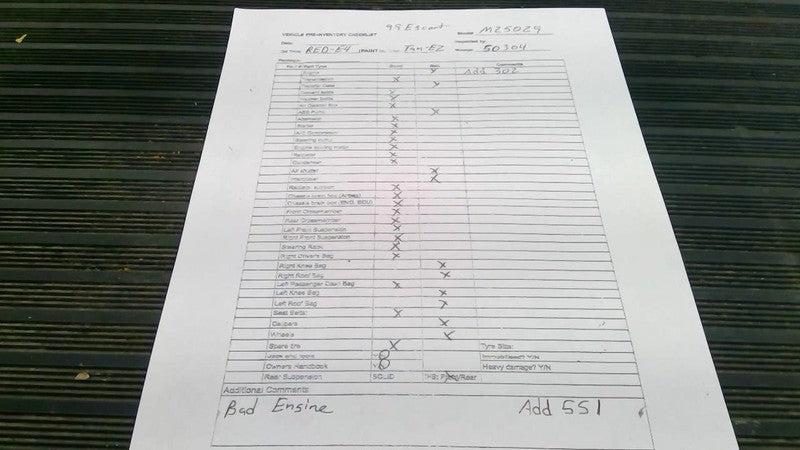 99 Escort
VEHICLE PRE-INVENTORY CHECKLIST M25029
Date: Inspected by:
RED-E4 (PAINT Tan-EZ Mileage: 50304
Part Type Good Bad Comments
Engine X Add 302
Transmission X
Transfer Case X
X
X
Air Cleaner Box X
ABS Pump X
Alternator X
Starter X
A/C Compressor X
Steering pump X
Engine cooling motor X
Radiator X
Condenser X
Air shutter X
Intercooler X
Radiator support X
Chassis brain box (Airbag) X
Chassis brain box (ENG, ECU) X
Front Crossmember X
Rear Crossmember X
Left Front Suspension X
Right Front Suspension X
Steering Rack X
Right Drivers Bag X
Right Knee Bag X
Right Roof Bag X
Left Passenger Dash Bag X
Left Knee Bag X
Left Roof Bag X
Seat Belts: X
Calipers X
Wheels X
Spare tire X Tyre Size:
Jack and tools Immobilised? Y/N
Owners Handbook Heavy damage? Y/N
Rear Suspension SOLID IRS: Front/Rear
Additional Comments
Bad Engine Add 551